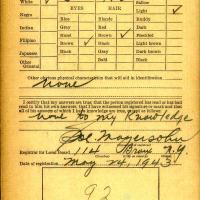 White
EYES
HAIR
Light
Negro
Blue
Blonde
Ruddy
Indian
Gray
Red
Dark
Filipino
Hazel
Brown
Freckled
Japanese
Brown
Black
Light brown
Black
Gray
Dark brown
Bald
Black
Other obvious physical characteristics that will aid in identification
none
I certify that my answers are true; that the person registered has read or has had
read to him his own answers; that I have witnessed his signature or mark and that
all of his answers of which I have knowledge are true, except as follows:
none to my Knowledge
Registrar for Local Board 114 Bronx N.Y.
Date of registration May 24, 1943